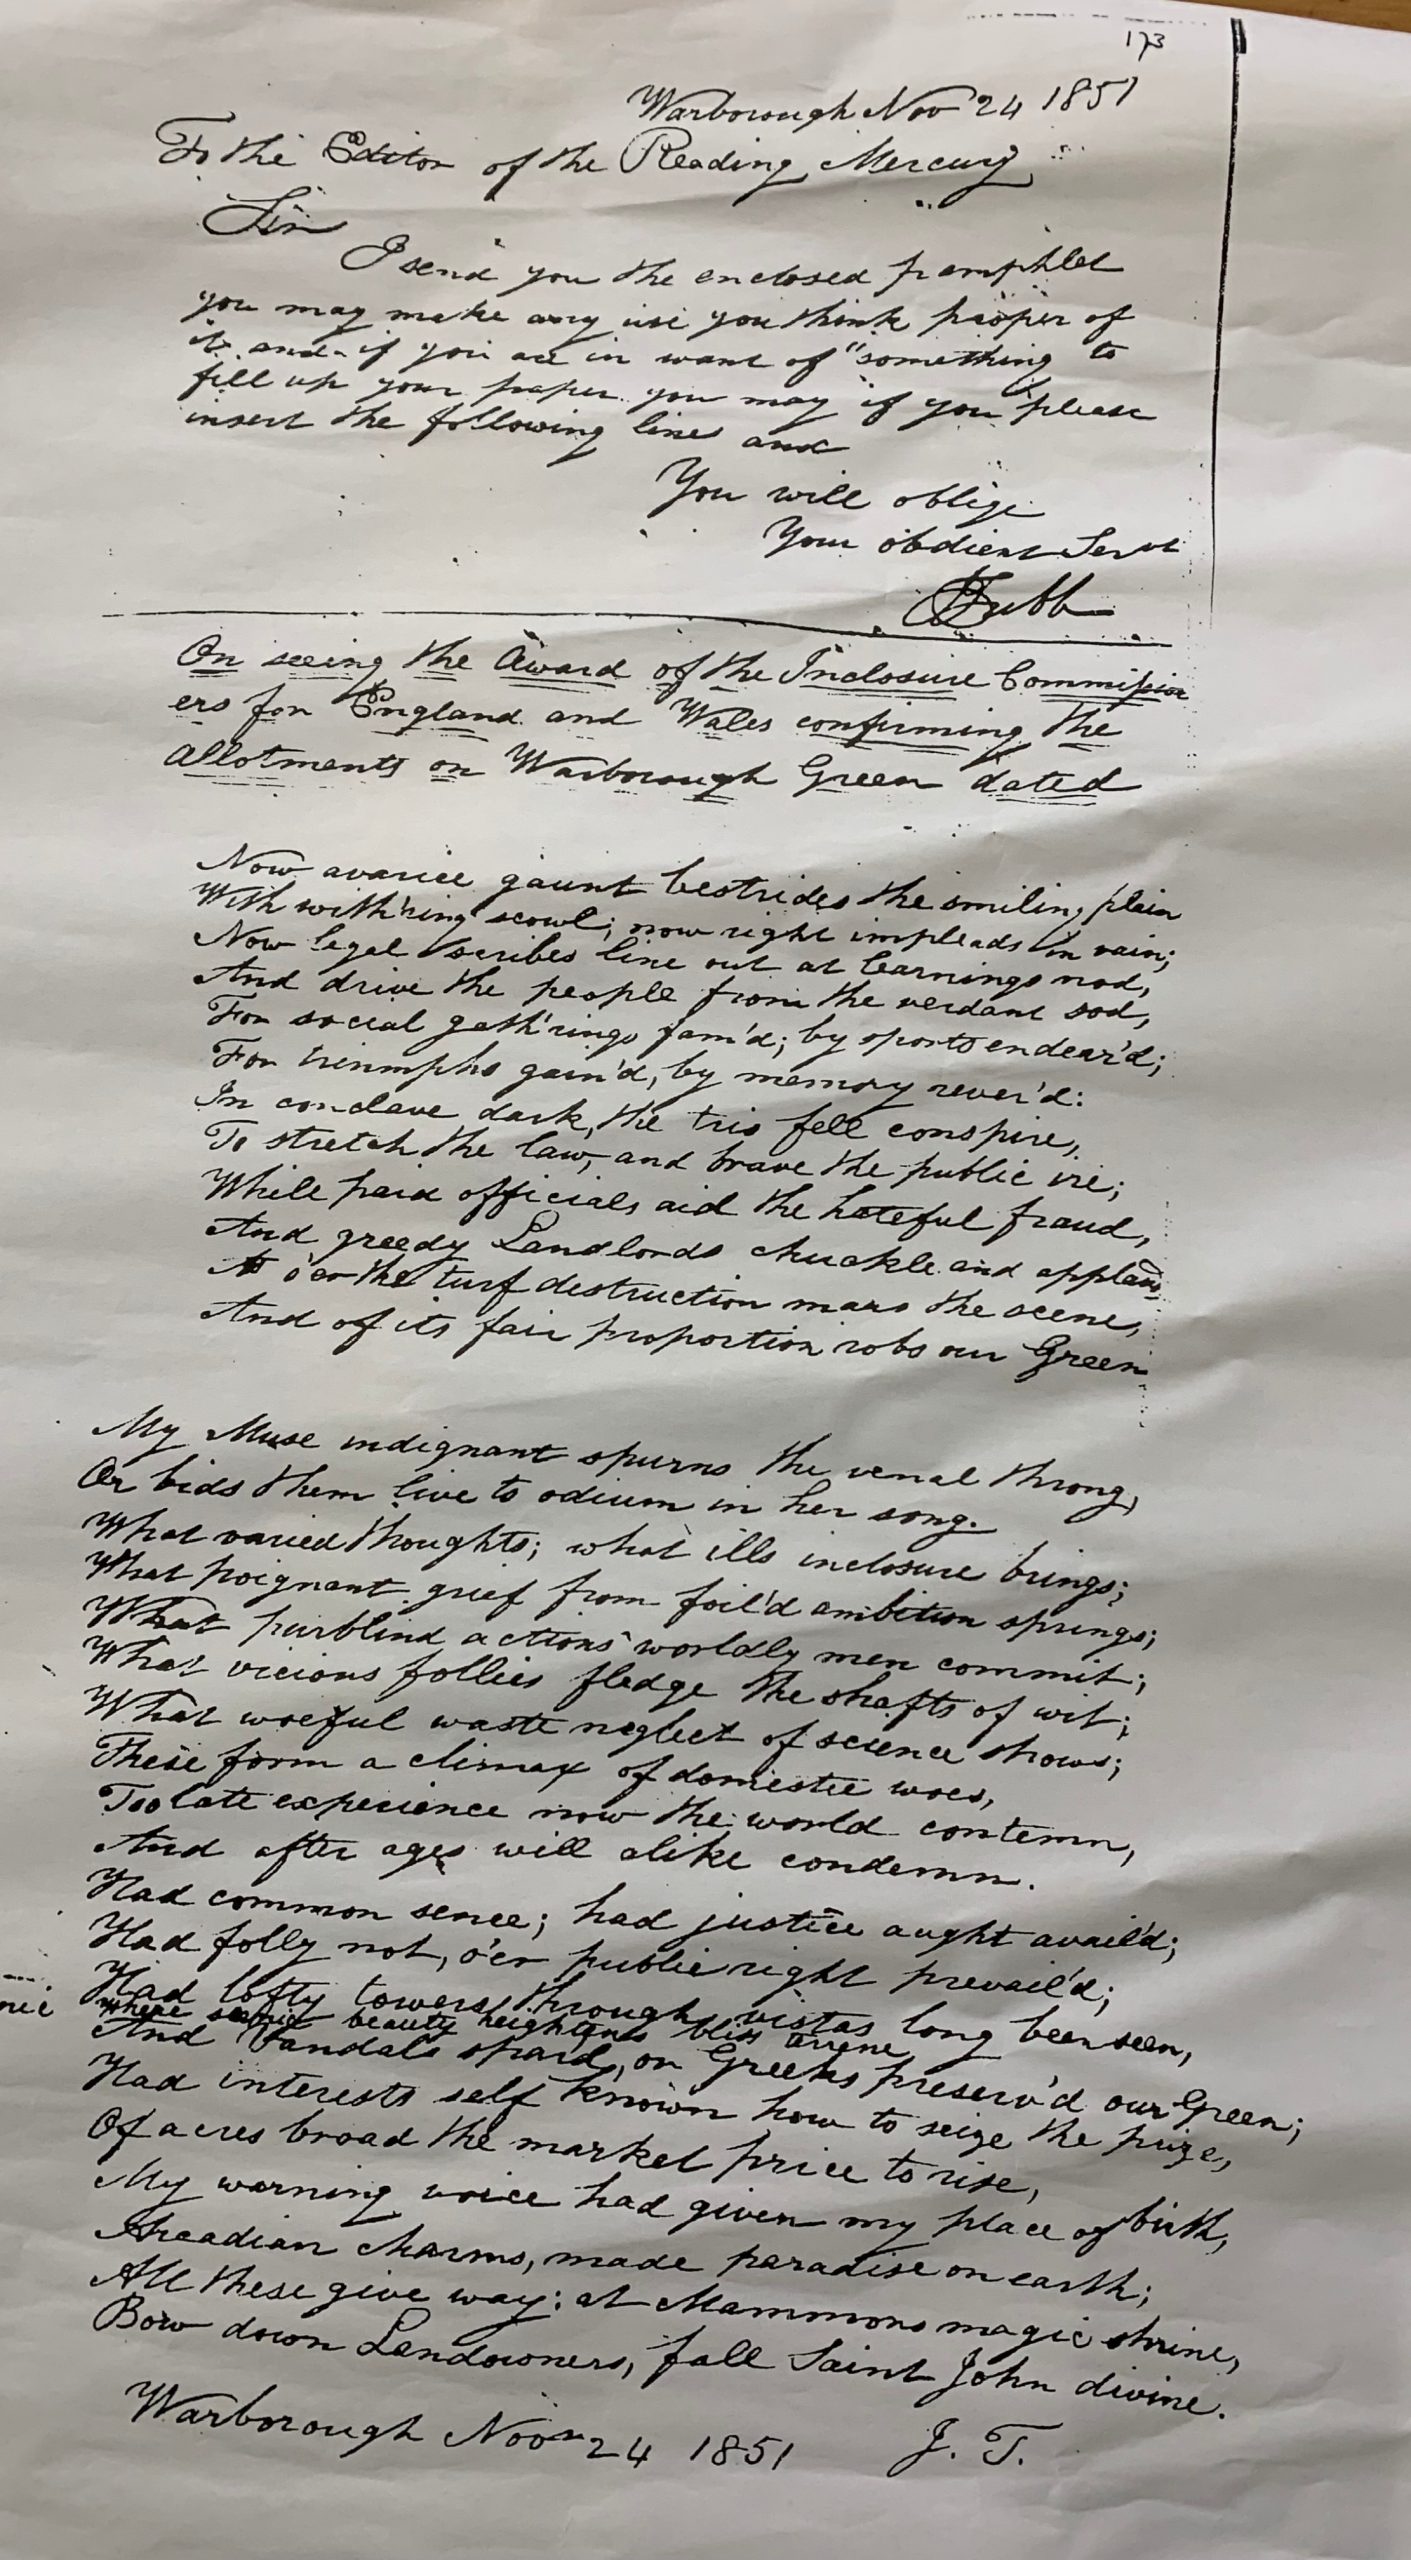 173
Warborough Nov 24 1851
To the Editor of the Reading Mercury
Sir
I send you the enclosed pamphlet
you may make any use you think proper of
it and if you are in want of "something to
fill up your paper you may if you please
insert the following lines and
You will oblige
Your obdient Servt
Tubb
On seeing the Award of the Inclosure Commission
ers for England and Wales confirming the
Allotments on Warborough Green dated
Now avarice gaunt bestrides the smiling plain
With with'ring scowl; now right impleads in vain;
Now legal scribes line out at learnings nod,
And drive the people from the verdant sod,
For social gath'rings fam'd; by sports endear'd;
For triumphs gain'd, by memory rever'd:
In conclave dark, the trio fell conspire,
To stretch the law, and brave the public ire;
While paid officials aid the hateful fraud,
And greedy Landlords chuckle and applaud,
As o'er the turf destruction mars the scene,
And of its fair proportion robs our Green
My Muse indignant spurns the venal throng,
Or bids them live to odium in her song.
What varied thoughts; what ills inclosure brings;
What poignant grief from foil'd ambition springs;
What purblind actions worldly men commit;
What vicious follies fledge the shafts of wit;
What woeful waste neglect of science shows;
These form a climax of domestic woes,
Too late experience now the world contemn,
And after ages will alike condemn.
Had common sence; had justice aught avail'd;
Had folly not, o'er public right prevail'd;
Had lofty towers through vistas long been seen,
Where beauty heightens bliss
And Vandals spar'd, or Greeks preserv'd our Green;
Had interests self known how to seize the prize,
Of acres broad the market price to rise,
My warning voice had given my place of birth,
Arcadian charms, made paradise on earth;
All these give way; at Mammons magic shrine,
Bow down Landowners, fall Saint John divine.
Warborough Novr 24 1851 J. T.